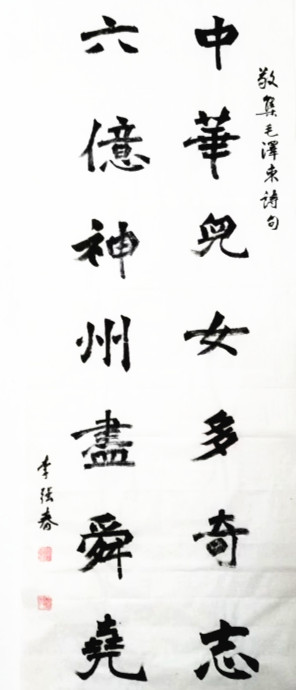 敬集毛澤東詩句
中華兒女多奇志
六億神州盡舜堯
李强春